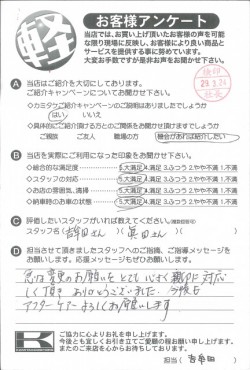 軽
お客様アンケート
当店では、お買い上げ頂いたお客様の声を可能な
限り現場に反映し、お客様により良い商品と
サービスを提供する事に努めています。
大変お手数ですが是非お声をお聞かせ下さい。
A 当店はご紹介を大切にしております。
ご紹介キャンペーンについてお聞かせ下さい。
検印
29.3.24
社長
◇カミタケご紹介キャンペーンのご説明はありましたでしょうか
はい いいえ
◇具体的にご紹介頂ける方とのご関係をお聞かせ頂けますでしょうか
ご親族 ご友人 職場の方 機会があれば紹介したい
B 当店を実際にご利用になった印象をお聞かせ下さい。
◇総合的な満足度 5.大満足 4.満足 3.ふつう 2.やや不満 1.不満
◇スタッフの対応 5.大満足 4.満足 3.ふつう 2.やや不満 1.不満
◇お店の雰囲気、清掃 5.大満足 4.満足 3.ふつう 2.やや不満 1.不満
◇納車時のお車の状態 5.大満足 4.満足 3.ふつう 2.やや不満 1.不満
C 評価したいスタッフがいれば教えてください。
スタッフ名( さん )( さん )
D 担当させて頂きましたスタッフへのご指摘、ご指導メッセージを
お願いします。応援メッセージもお願いします。
急な変更のお願いを とても 心よく 親切に 対応
して頂き ありがとうございました。今後も
アフターケアー よろしくお願いします
K
ご協力に心よりお礼を申し上げます。
今後とも宜しくお引き立てご愛顧の程お願い申し上げます。
またのご来店を心からお待ちしております。
担当( )